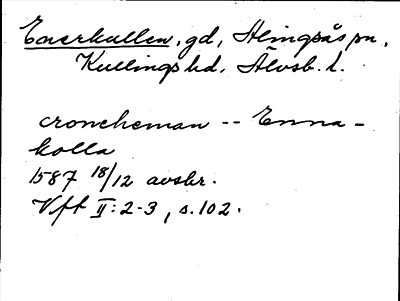 Enerkullen, gd, Alingsås sn,
Kullings hd, Älvsb. l.
croncheman -- Enna-
kolla
1587 18/12 avskr.
Vft II:2-3, s.102.